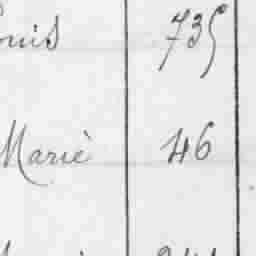 ouis 735
Mariè 46